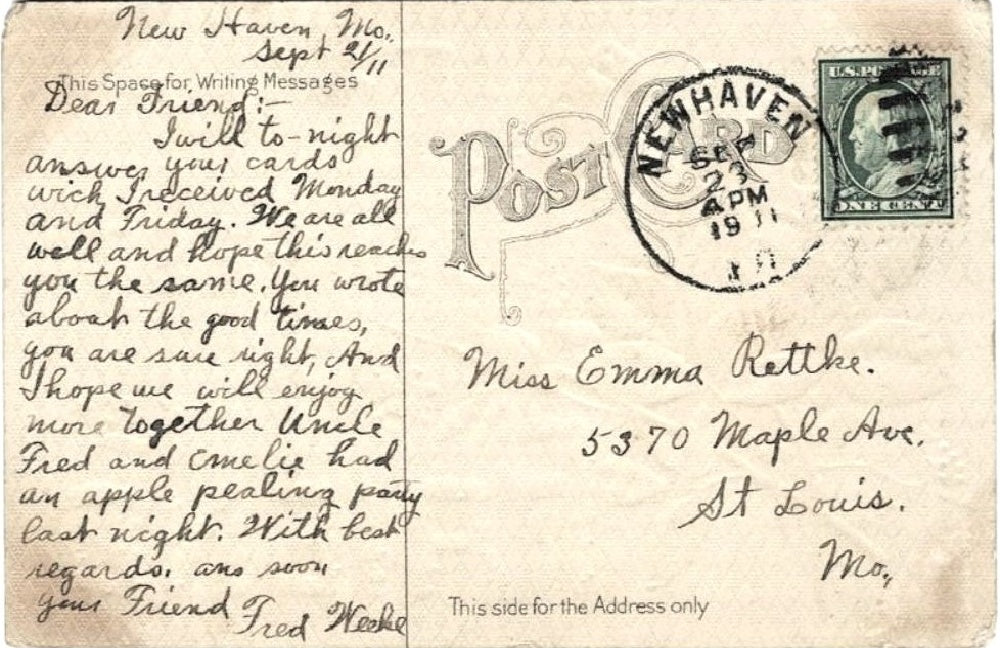 New Haven, Mo.,
Sept 21/11
This Space for Writing Messages
Dear Friend:-
I will to-night
answer your cards
wich I received Monday
and Friday. We are all
well and hope this reaches
you the same. You wrote
about the good times,
you are sure right, And
I hope we will enjoy
more together Uncle
Fred and Emelie had
an apple pealing party
last night. With best
regards. ans soon
your Friend
Fred
POST CARD
NEWHAVEN
SEP
23
4 PM
1911
U.S. POSTAGE
ONE CENT
Miss Emma Rettke.
5370 Maple Ave.
St Louis.
Mo.,
This side for the Address only